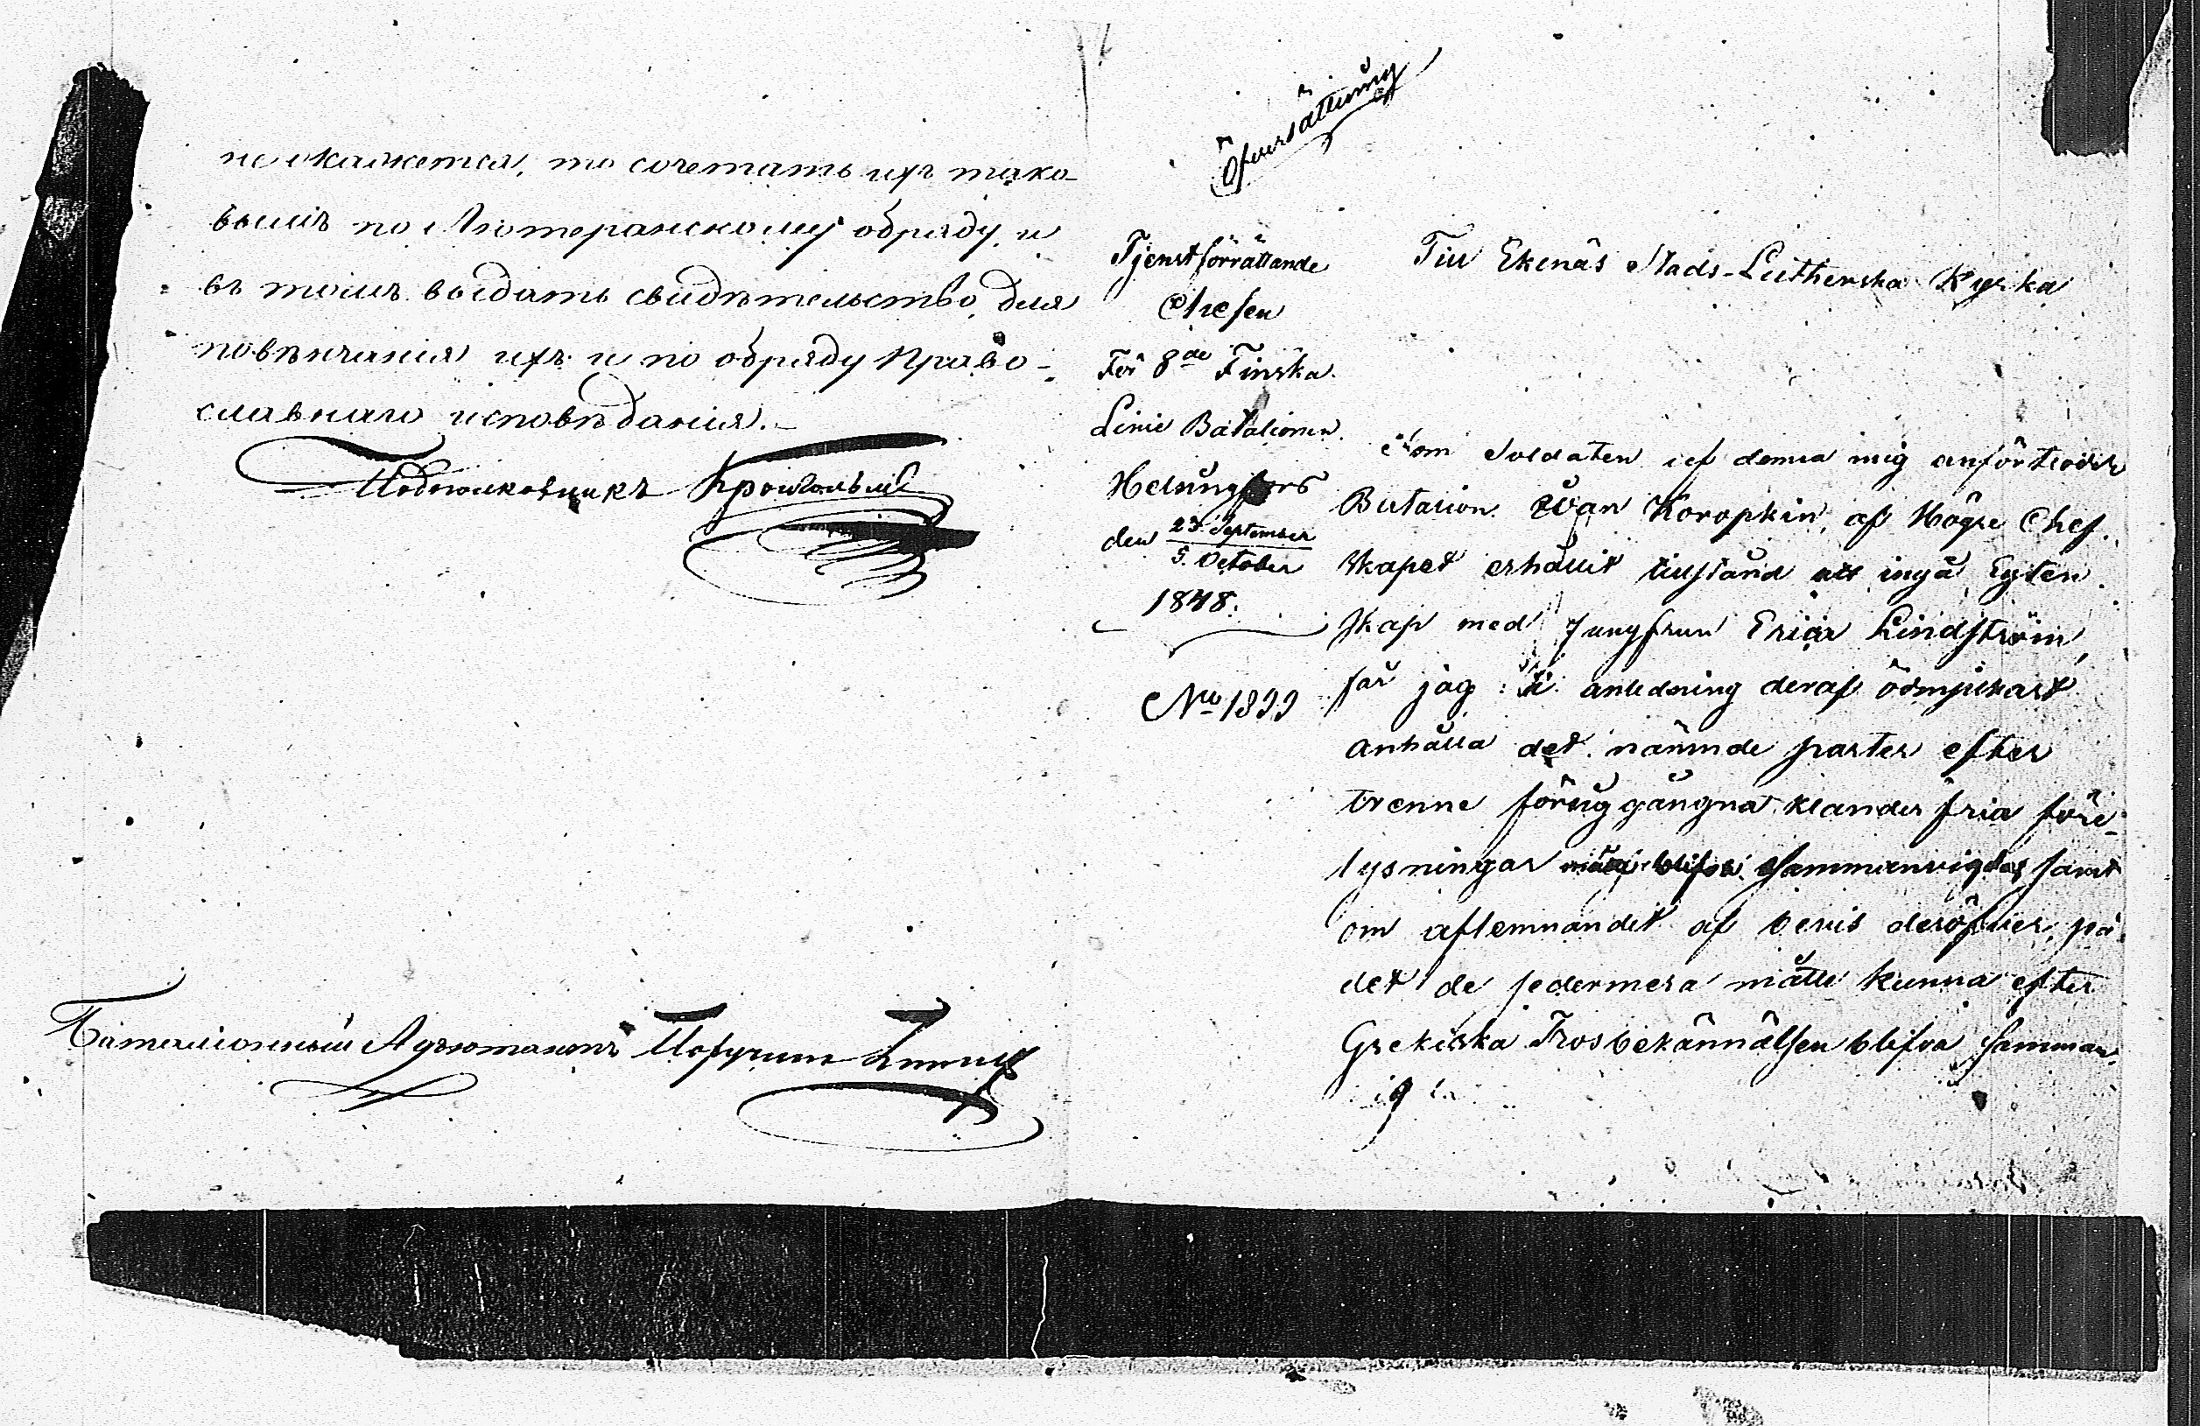 не окажется, то сочетать ихъ тако-
вымъ по Лютеранскому обряду, и
въ томъ выдать свидѣтельство, для
повѣнчанія ихъ и по обряду Право-
славнаго исповѣданія.
Подполковникъ
Баталіонный Адъютантъ Поручикъ
Öfversättning
Tjenstförrättande
Chefen
För 8de Finska
Linie Bataljonen.
Helsingfors
den 23 September
5 October
1848.
No 1899
Till Ekenäs Stads-Lutherska Kyrka
Som Soldaten uti denna mig anförtrodde
Bataljon Iwan Koropkin, af Högre Chef-
skapet erhållit tillstånd att ingå Egten-
skap med Jungfrun Erica Lindström,
får jag i anledning deraf ödmjukast
anhålla det nämnde parter efter
trenne föregångna klander fria före-
lysningar måtte blifva Sammanvigdas samt
om aflemnandet af bevis deröfver, på
det de sedermera måtte kunna efter
Grekiska Trosbekännelsen blifva Samman-